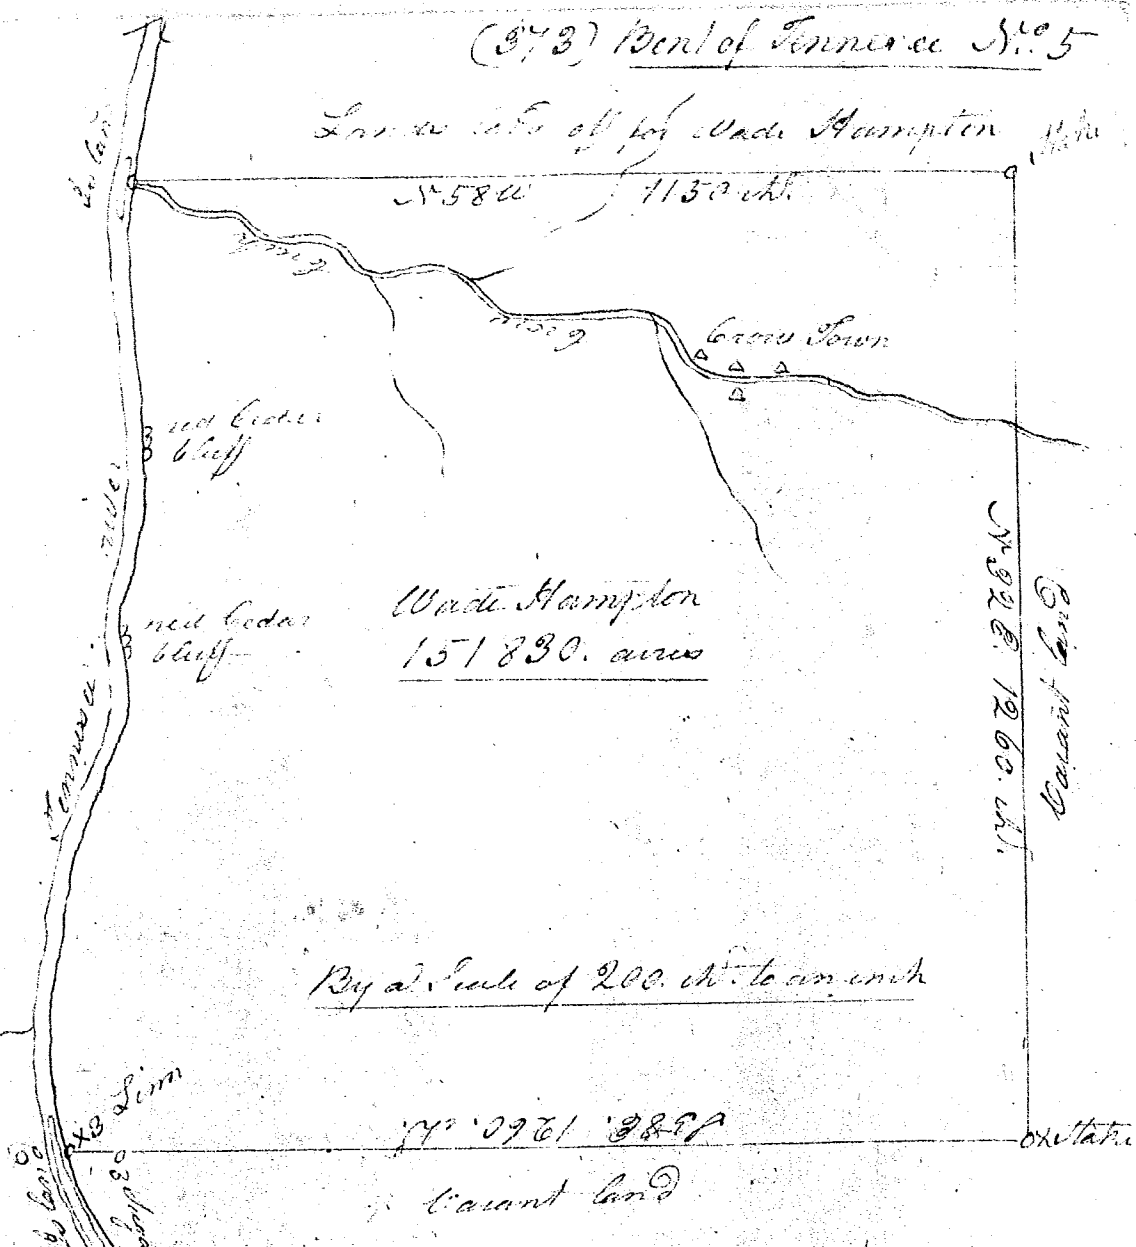 (373) Bent of Tennessee No. 5
Lands laid off for Wade Hampton
Stake
N 58 W 1150 chs.
Island
Creek
Creek
Crow Town
red Cedar
bluff
river
red Cedar
bluff
Tennessee
Wade Hampton
151 830. acres
N. 32 E. 1260. chs.
Vacant land
By a Scale of 200. chs. to an inch
X3 Linn
S 58 E. 1260. chs.
X Stake
Vacant land